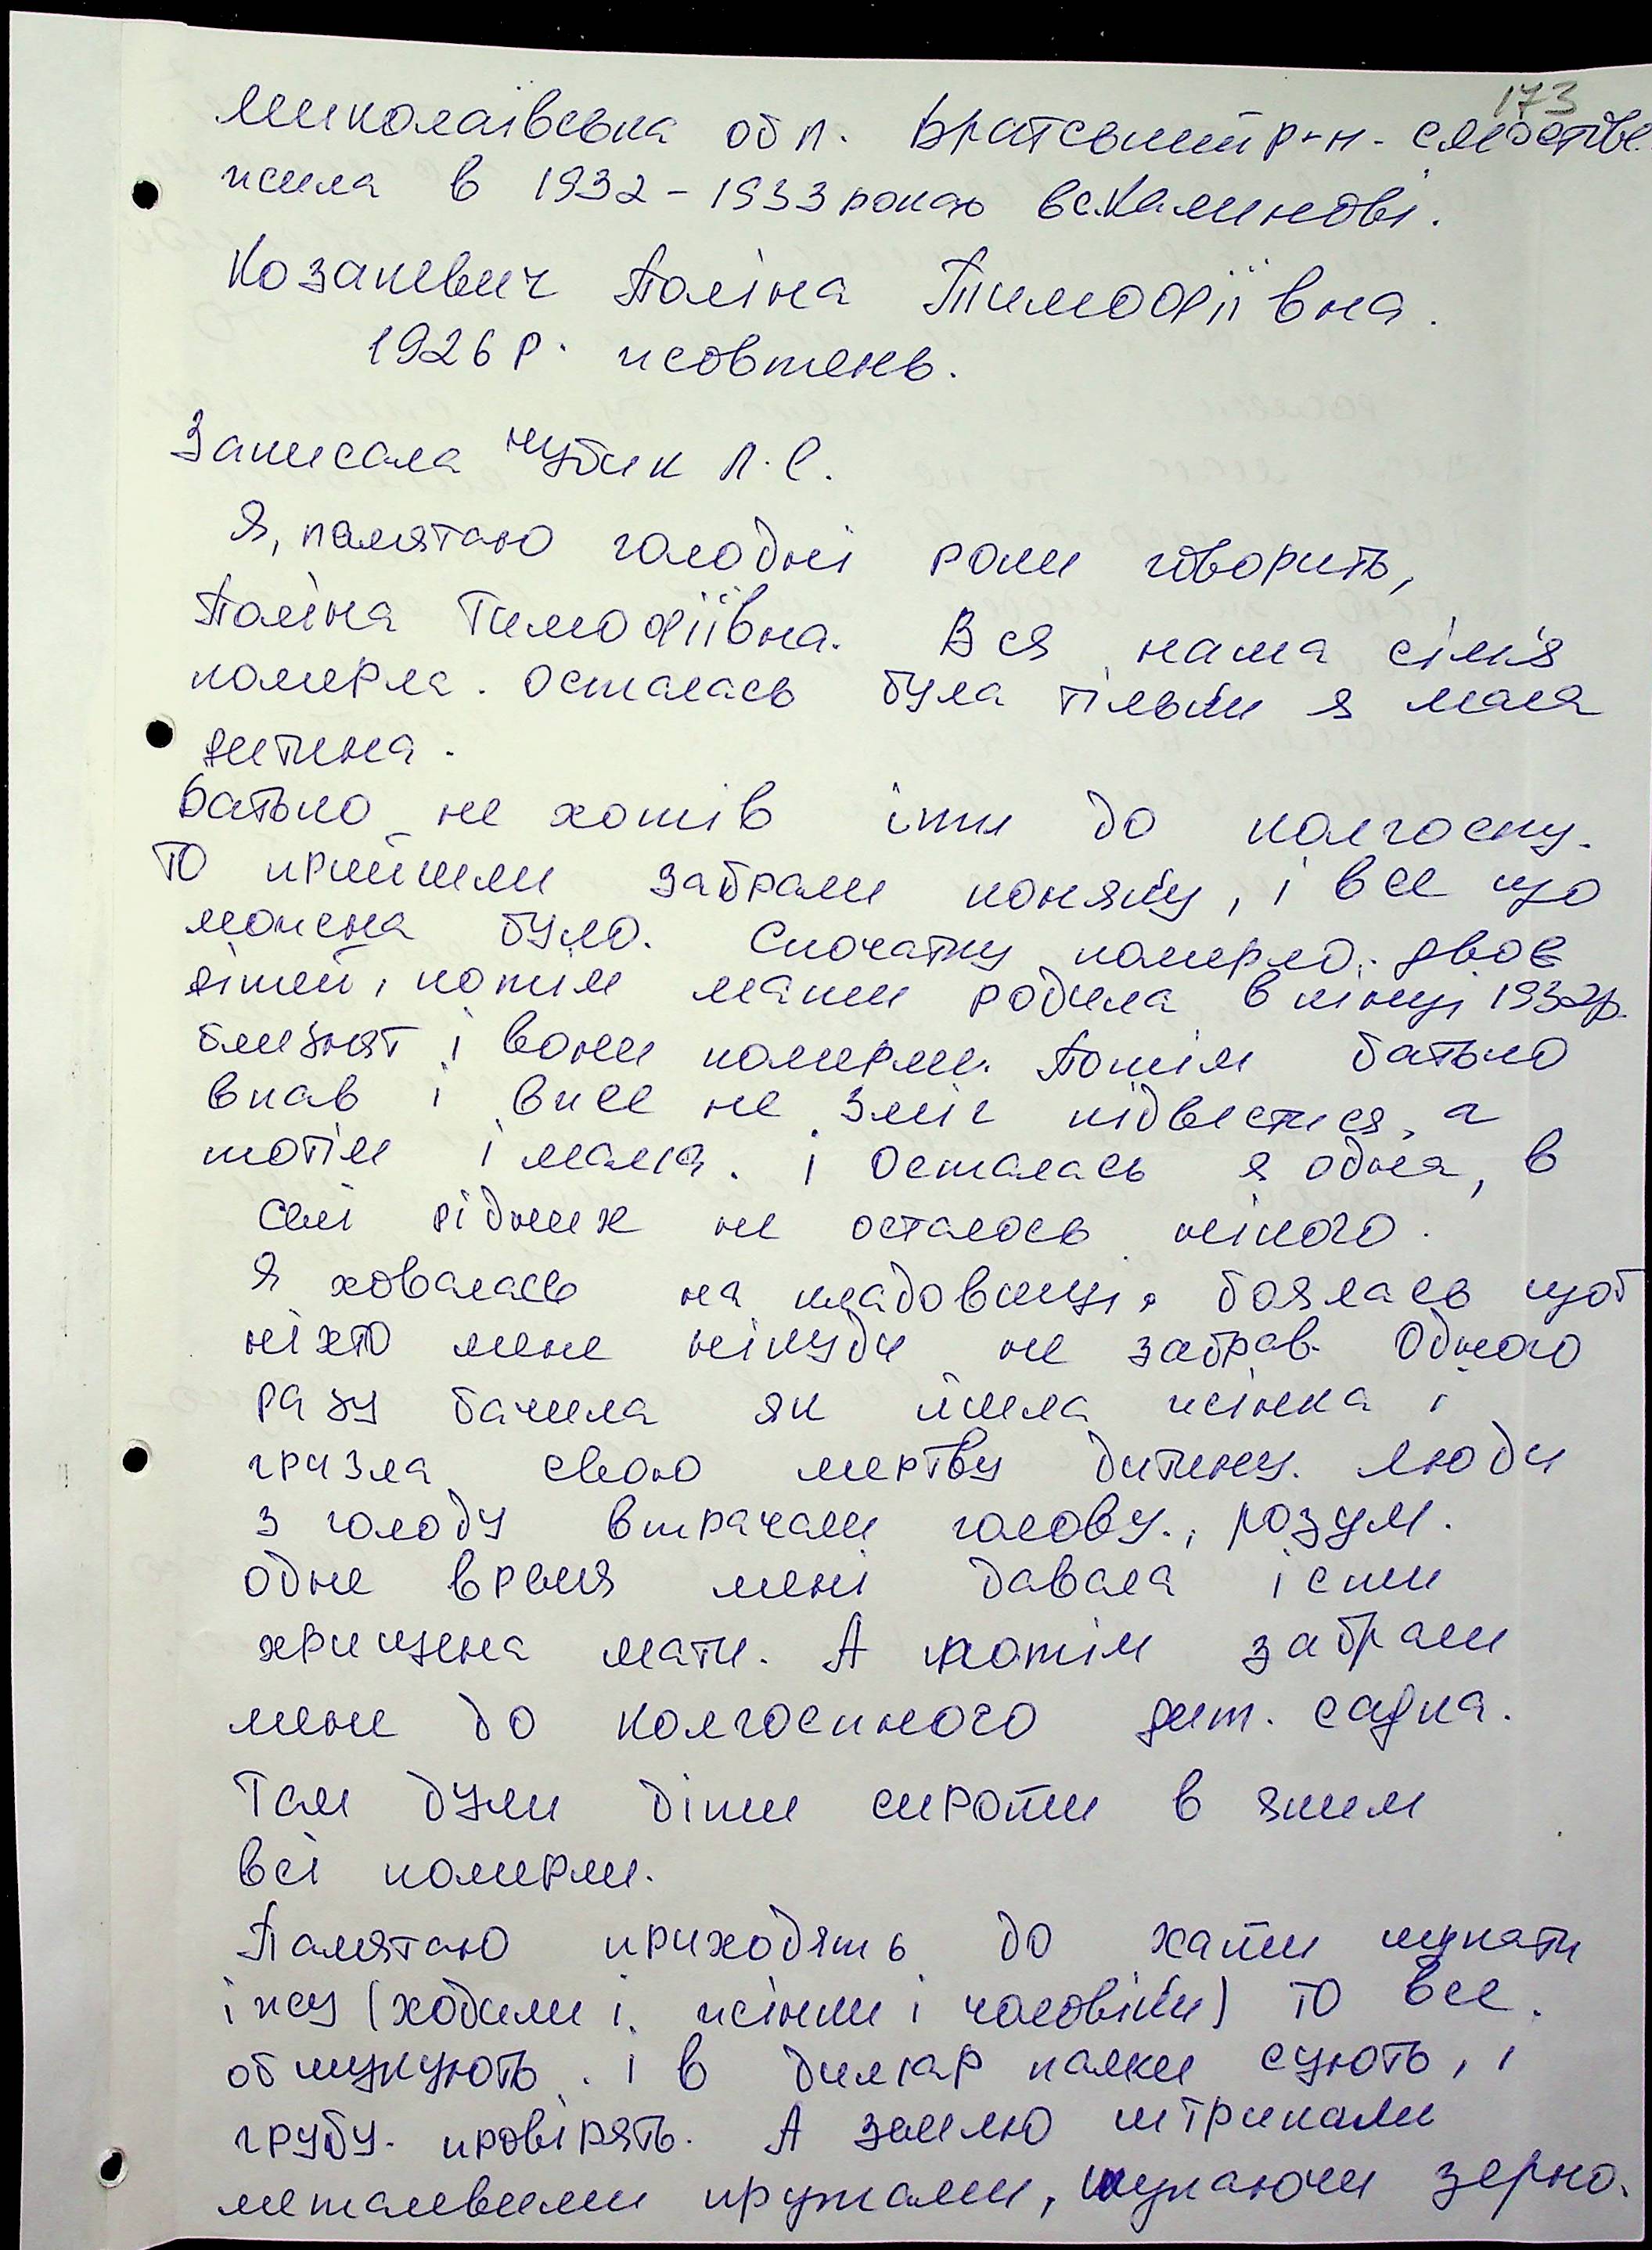 173
Миколаївська обл. Братський р-н.
жила в 1932-1933 роках в с. Калинові.
Козакевич Поліна Тимофіївна.
1926 р. жовтень.
Записала Чубик Л.С.
Я, памятаю голодні роки говорить,
Поліна Тимофіївна. Вся наша сім'я
померла. Осталась була тільки я мала
дитина.
Батько не хотів іти до колгоспу.
То прийшли забрали коняку, і все що
можна було. Спочатку померло двоє
дітей, потім мати родила в кінці 1932р.
близнят і вони померли. Потім батько
впав і вже не зміг підвестися, а
потім і мама. і Осталась я одна, в
селі рідних не осталось нікого.
Я ховалась на кладовищі, боялась щоб
ніхто мене нікуди не забрав. Одного
разу бачила як йшла жінка і
гризла свою мертву дитину. Люди
з голоду втрачали голову, розум.
Одне время мені давала їсти
хрищена мати. А потім забрали
мене до колгоспного дит. садка.
Там були діти сироти в яких
всі померли.
Памятаю приходять до хати шукати
їжу (ходили і жінки і чоловіки) то все
обшукують. і в димар палки сують, і
грубу провірять. А землю штрикали
металевими прутами, шукаючи зерно.